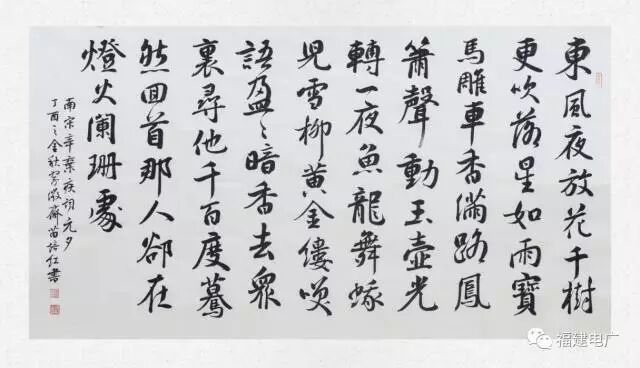 東風夜放花千樹
更吹落星如雨寶
馬雕車香滿路鳳
簫聲動玉壺光
轉一夜魚龍舞蛾
兒雪柳黃金縷咲
語盈〻暗香去眾
裏尋他千百度驀
然回首那人卻在
燈火闌珊處
南宋辛棄疾詞元夕
丁酉之金秋齋苗培红書
福建电广